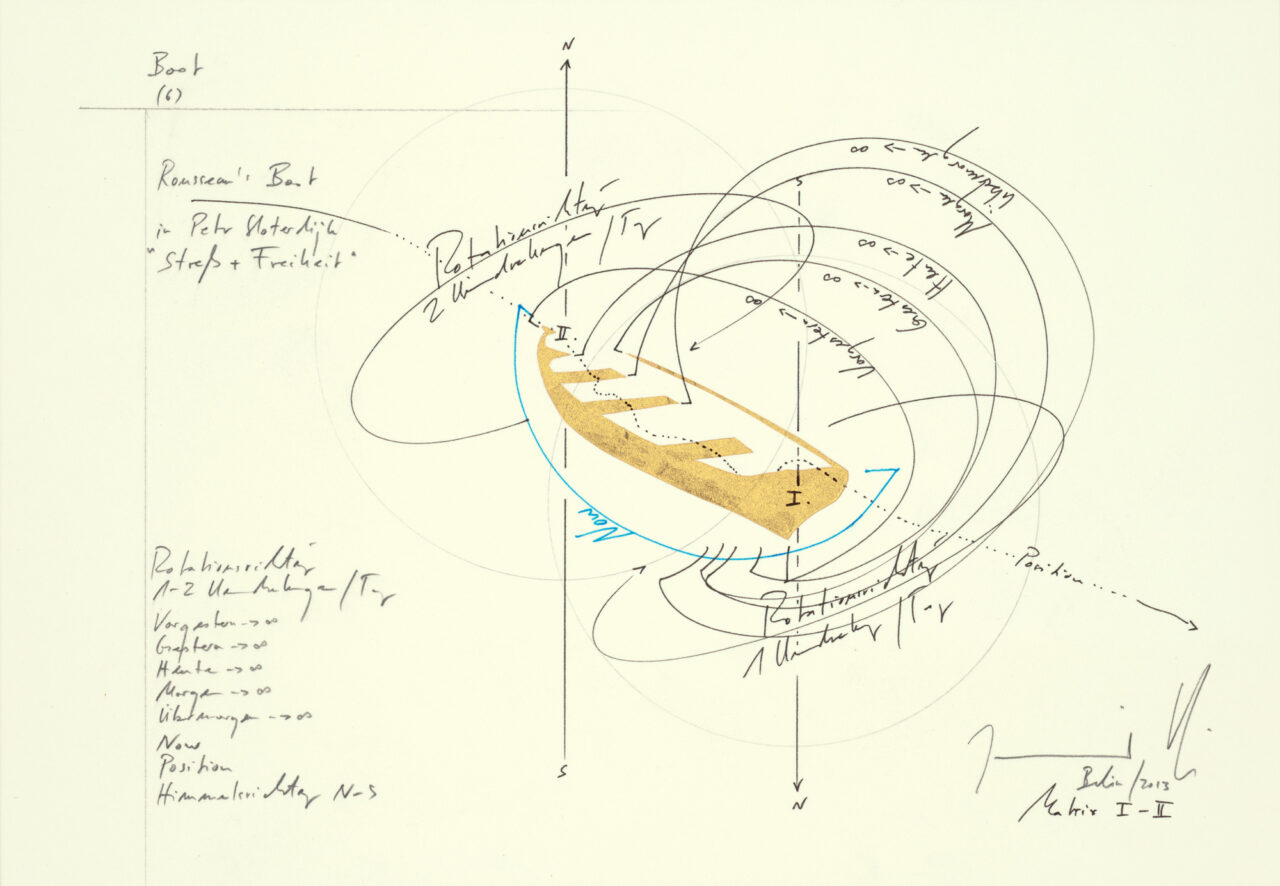 Boot
(6)
Rousseau's Boot
in Petr Sloterdijk
"Streß + Freiheit"
N
S
Rotationsrichtung
2 Umdrehungen/Tag
Übermorgen -> ∞
Morgen -> ∞
Heute -> ∞
Gestern -> ∞
Vorgestern -> ∞
II
I
Now
Position
Rotationsrichtung
1 Umdrehung/Tag
Rotationsrichtung
1-2 Umdrehungen/Tag
Vorgestern -> ∞
Gestern -> ∞
Heute -> ∞
Morgen -> ∞
Übermorgen -> ∞
Now
Position
Himmelsrichtung N-S
S
N
Berlin/2013
Matrix I-II